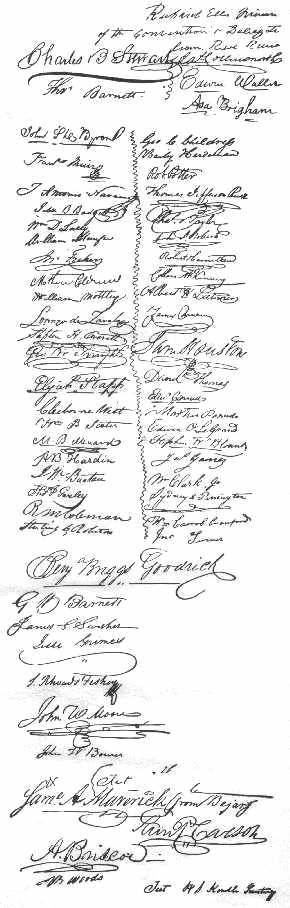 Richard Ellis
of the Convention & Delegate
from Red River
Charles B Stewart
Thos Barnett
Edwin Waller
Asa Brigham
John S. D. Byrom
J Antonio Navarro
Wm D Lacy
William Menefee
Jno Fisher
Mathew Caldwell
William Mottley
Lorenzo de Zavala
Geo W Smyth
Elijah Stapp
Claiborne West
Wm B Scates
M. B. Menard
A B Hardin
J. W. Bunton
R. M. Coleman
Sterling C. Robertson
Geo C Childress
Baily Hardeman
Rob Potter
Thomas Jefferson Rusk
Robert Hamilton
Collin McKinney
Albert H Latimer
James Power
Sam Houston
David Thomas
Edwin O LeGrand
Jas Gaines
Wm Clark Jr
Sydney O Penington
Wm Carrol Crawford
Jno Turner
Benj Briggs Goodrich
G W Barnett
James G Swisher
Jesse Grimes
S. Rhoads Fisher
John W Moore
John W Bower
Saml A Maverick from Bejar
Sam P Carson
A. Briscoe
J B Woods
Test H S Kimble